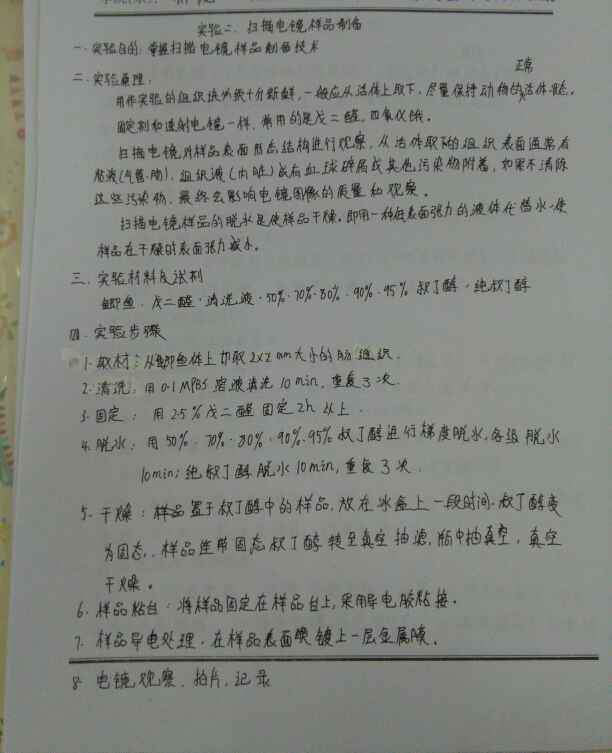 实验二、扫描电镜样品制备
一、实验目的：掌握扫描电镜样品制备技术
二、实验原理：
正常
用作实验的组织块必须十分新鲜，一般应从活体上取下，尽量保持动物的活体状态。
固定剂和透射电镜一样，常用的是戊二醛，四氧化锇。
扫描电镜对样品表面形态结构进行观察，从活体取下的组织表面通常有
粘液(气管、肠)，组织液(内脏)或有血球碎屑或其他污染物附着，如果不清除
这些污染物，最终会影响电镜图像的质量和观察。
扫描电镜样品的脱水是使样品干燥，即用一种低表面张力的液体代替水，使
样品在干燥时表面张力减小。
三、实验材料及试剂
鲫鱼、戊二醛、清洗液、50%、70%、80%、90%、95% 叔丁醇、纯叔丁醇
四、实验步骤
1. 取材：从鲫鱼体上切取2x2mm大小的肠组织.
2. 清洗：用0.1MPBS溶液清洗10min，重复3次.
3. 固定：用2.5%戊二醛固定2h以上.
4. 脱水：用50%、70%、80%、90%、95%叔丁醇进行梯度脱水，各级脱水
10min；纯叔丁醇脱水10min，重复3次.
5. 干燥：样品置于叔丁醇中的样品，放在冰盒上一段时间，叔丁醇变
为固态，样品连带固态叔丁醇转至真空抽滤，瓶中抽真空，真空
干燥。
6. 样品粘台：将样品固定在样品台上，采用导电胶粘接。
7. 样品导电处理：在样品表面喷镀上一层金属膜。
8. 电镜观察、拍片、记录